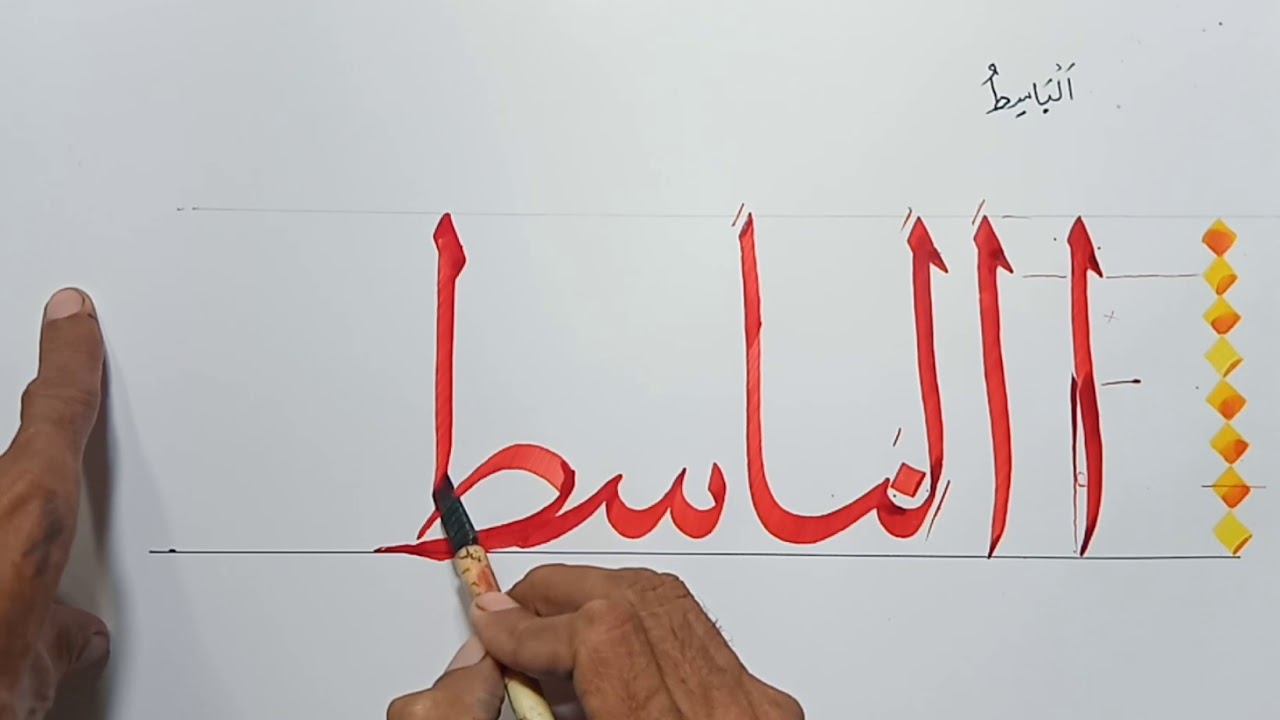 اَلْبَاسِطُ
ا الباسط